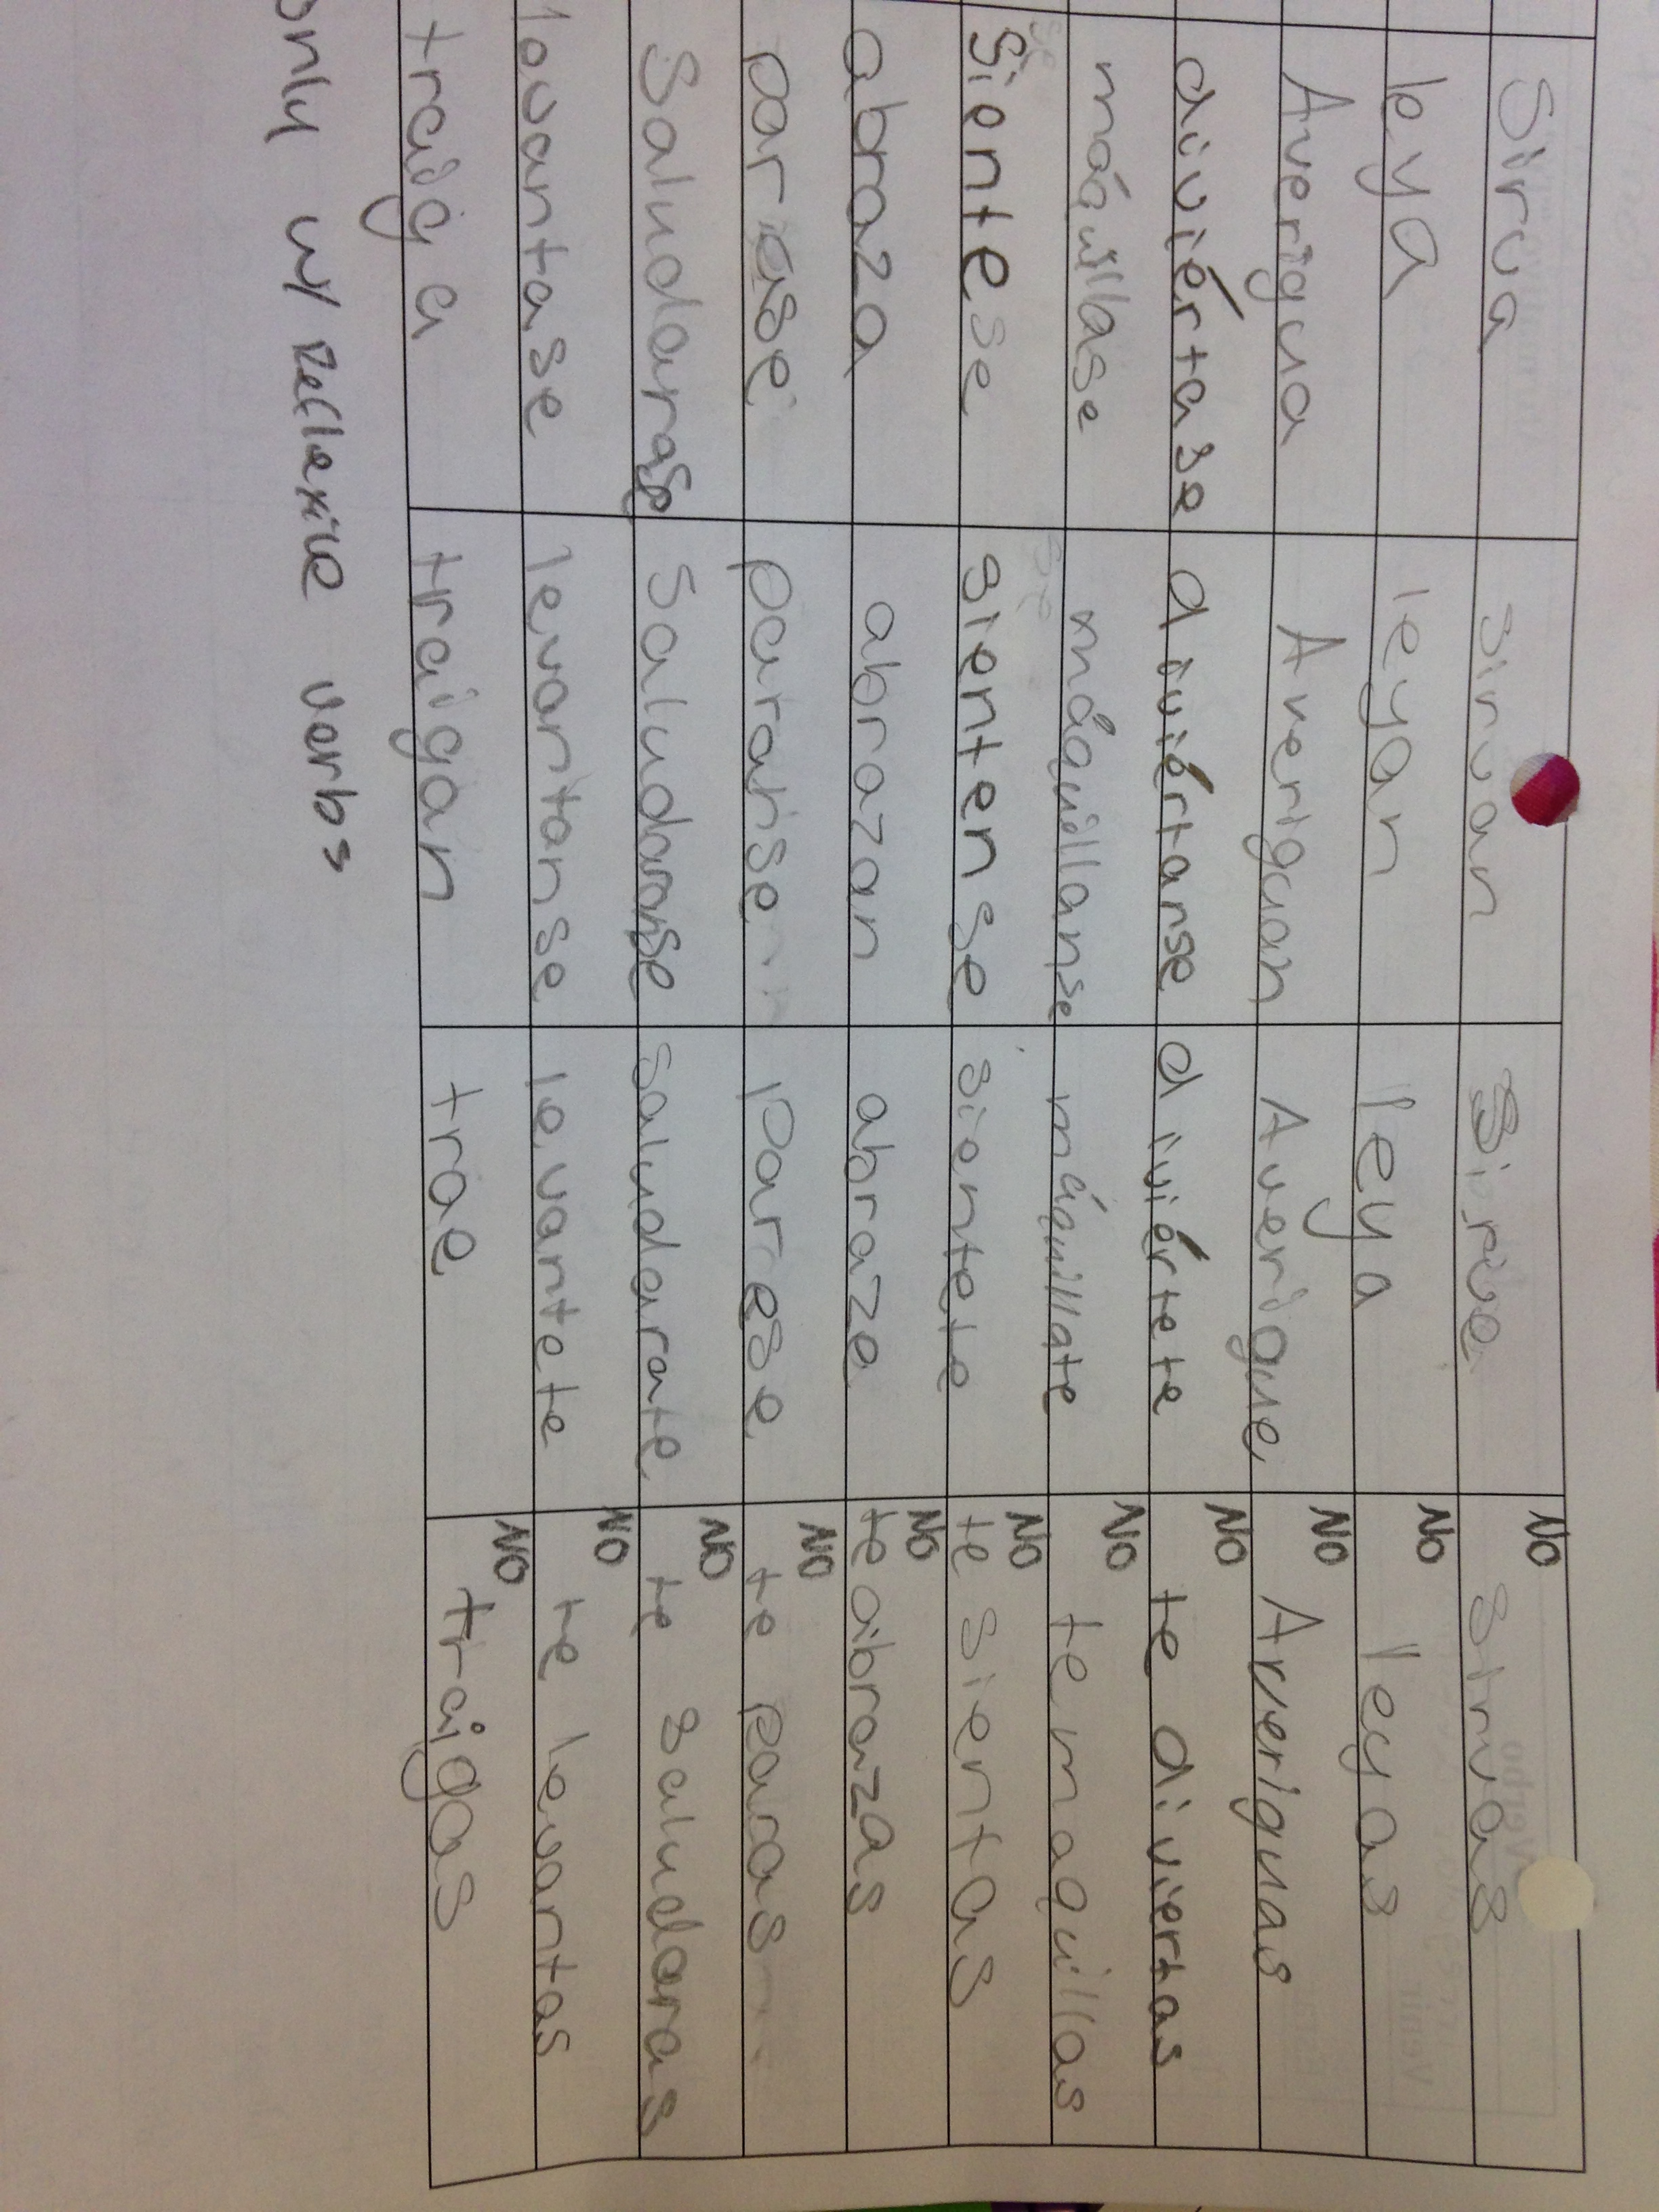 Sirva sirvan Sirve NO sirvas
leya leyan leya NO leyas
Averigua Averiguan Averigue NO Averiguas
diviértase diviértanse diviértete NO te diviertas
máquillase máquillanse máquillate NO te maquillas
Sientese sientense sientete NO te sientas
abraza abrazan abraze NO te abrazas
parase paranse parese NO te paras
Saludarase Saludaranse saludarate NO te saludaras
levantase levantanse levantete NO te levantas
traiga traigan trae NO traigas
only w/ Reflexive verbs